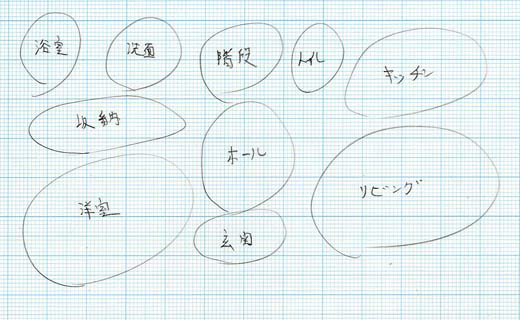 浴室
洗面
階段
トイレ
キッチン
収納
ホール
リビング
洋室
玄関